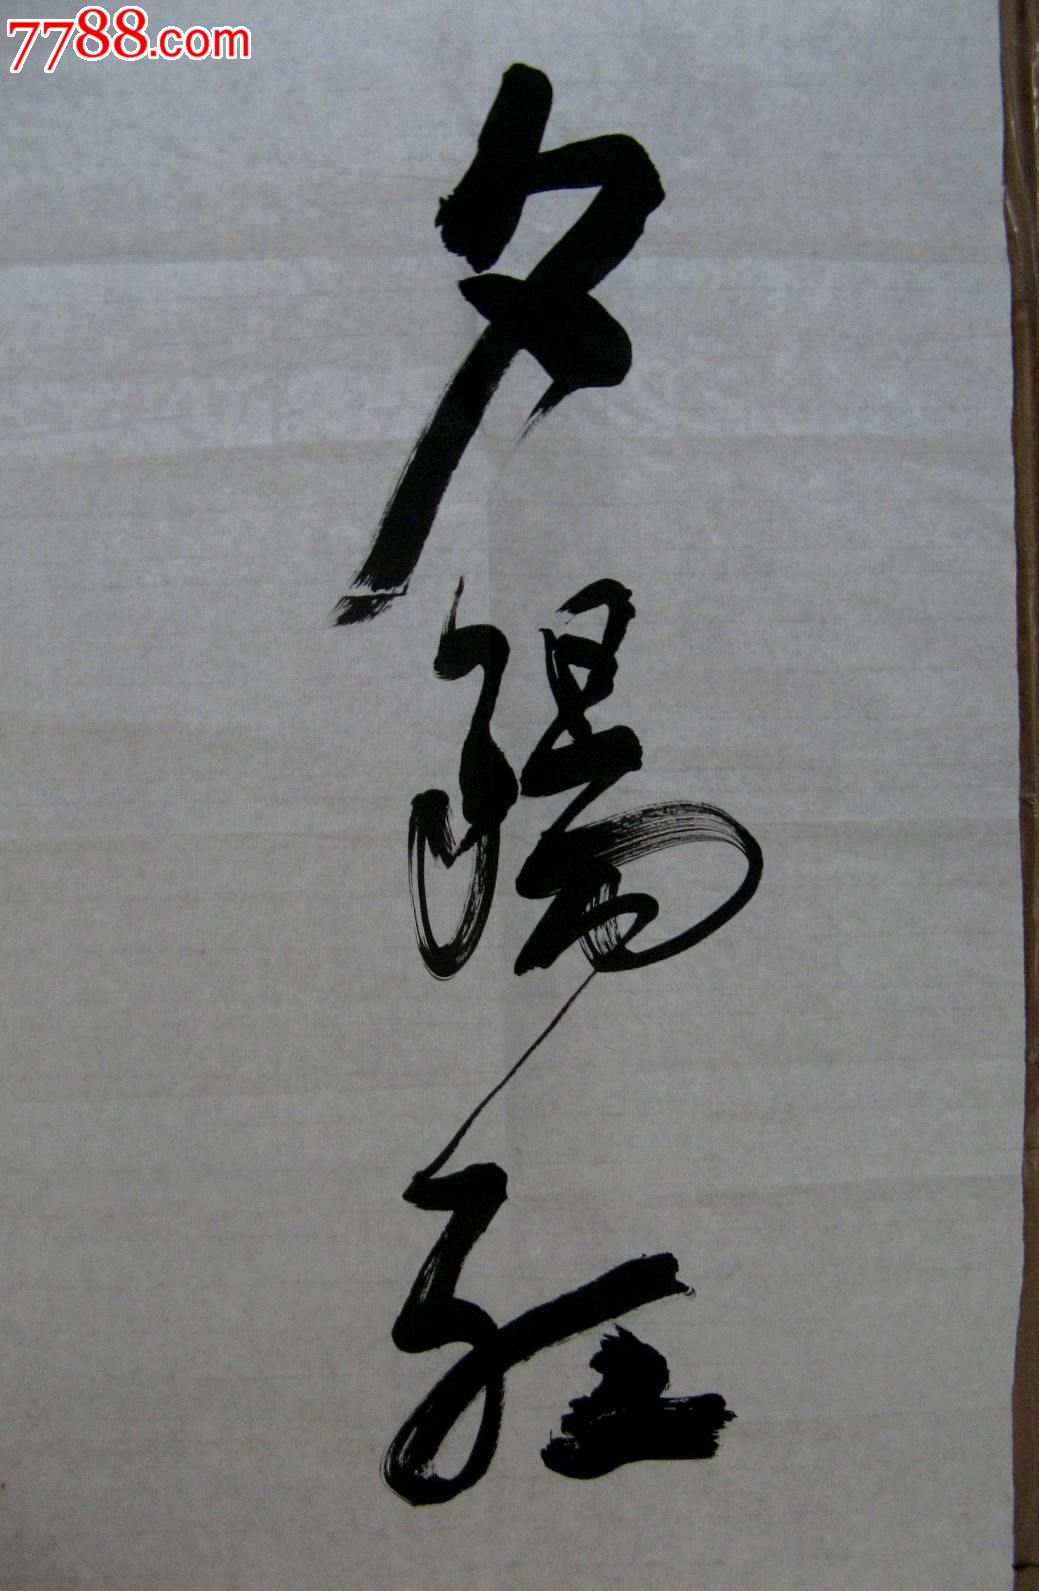 7788.com
夕陽红